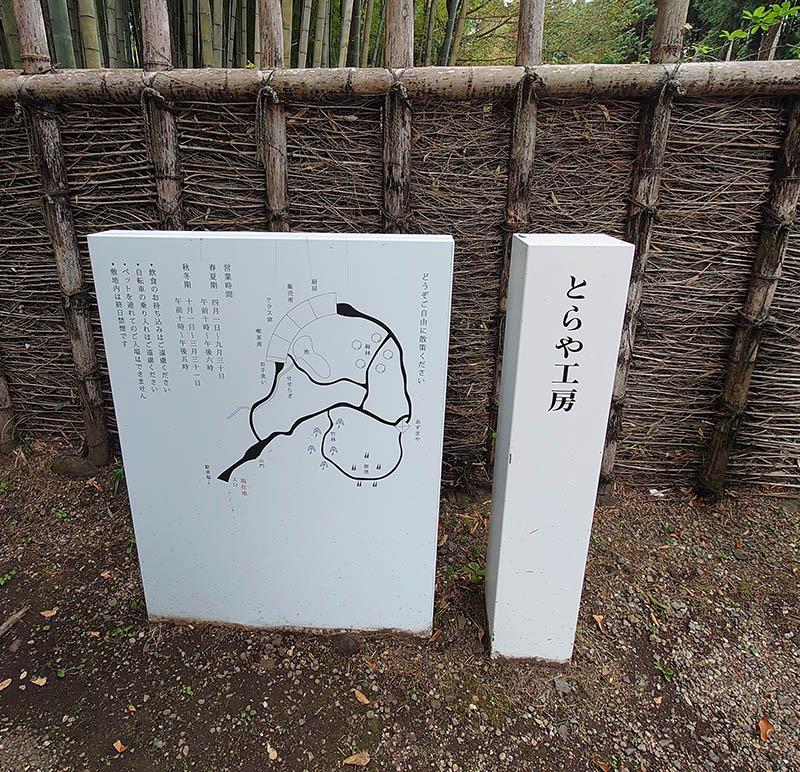 どうぞご自由に散策ください
厨房
販売所
テラス席
喫茶席
お手洗い
せせらぎ
池
梅林
あずまや
竹林
畑
山門
入口
駐車場
現在地
営業時間
春夏期 四月一日〜九月三十日
午前十時〜午後六時
秋冬期 十月一日〜三月三十一日
午前十時〜午後五時
・飲食のお持ち込みはご遠慮ください
・自転車の乗り入れはご遠慮ください
・ペットを連れてのご入場はできません
・敷地内は終日禁煙です
とらや工房